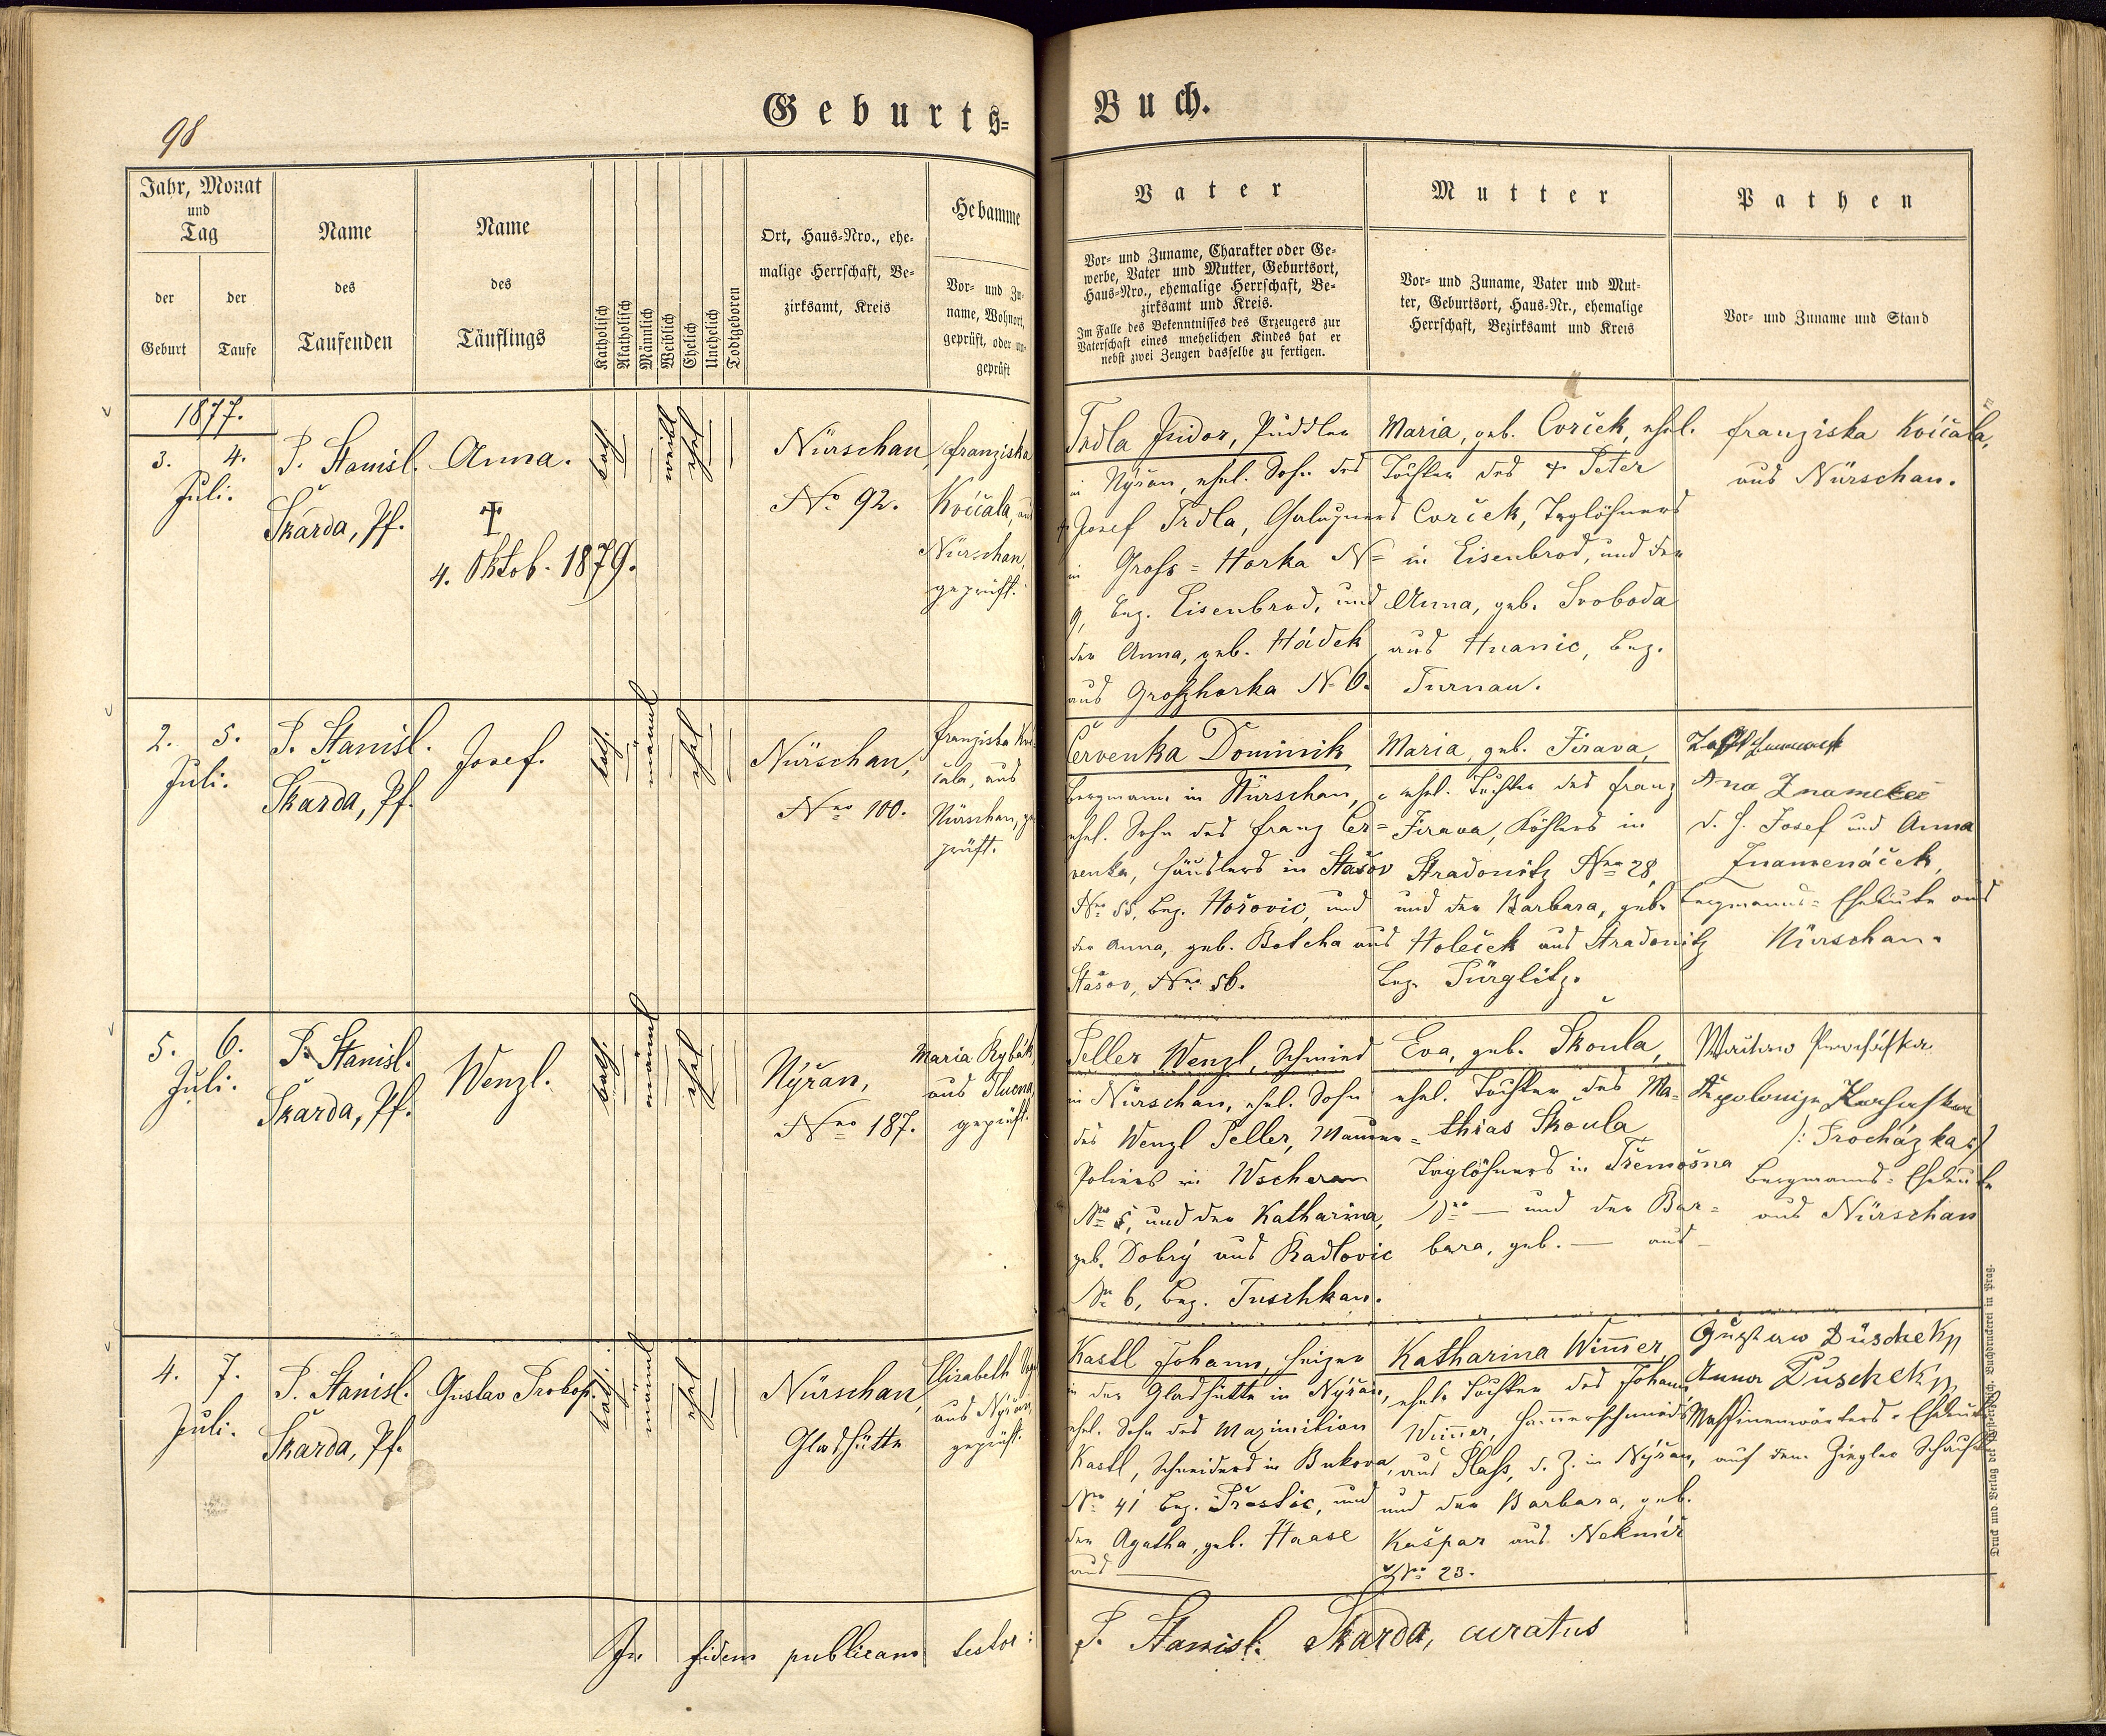 98
Geburts=
Buch.
Jahr, Monat
und
Tag
der
Geburt
der
Taufe
Name
des
Taufenden
Name
des
Täuflings
Katholisch
Akatholisch
Männlich
Weiblich
Ehelich
Unehelich
Todtgeboren
Ort, Haus-Nro., ehe-
malige Herrschaft, Be-
zirksamt, Kreis
Hebamme
Vor- und Zu-
name, Wohnort,
geprüft, oder un-
geprüft
Vater
Vor- und Zuname, Charakter oder Ge-
werbe, Vater und Mutter, Geburtsort,
Haus-Nro., ehemalige Herrschaft, Be-
zirksamt und Kreis.
Im Falle des Bekenntnisses des Erzeugers zur
Vaterschaft eines unehelichen Kindes hat er
nebst zwei Zeugen dasselbe zu fertigen.
Mutter
Vor- und Zuname, Vater und Mut-
ter, Geburtsort, Haus-Nr., ehemalige
Herrschaft, Bezirksamt und Kreis
Pathen
Vor- und Zuname und Stand
1877.
3. 4.
Juli.
P. Stanisl.
Škarda, Pf.
Anna.
†
4. Oktob. 1879.
kath.
weibl
ehel
Nürschan,
No 92.
Franziska
Kvíčala, aus
Nürschan,
geprüft.
Trdla Isidor, Puddler
in Nýřan, ehel. Sohn des
† Josef Trdla, Galuzners
in Groß=Horka N=
9, Bez. Eisenbrod, und
der Anna, geb. Hádek
aus Großhorka N. 6.
Maria, geb. Cvrček, ehel.
Tochter des † Peter
Cvrček, Taglöhners
in Eisenbrod, und der
Anna, geb. Svoboda
aus Hnanic, Bez.
Turnau.
Franziska Kvíčala,
aus Nürschan.
2. 5.
Juli.
P. Stanisl.
Škarda, Pf.
Josef.
kath.
männl
ehel
Nürschan,
Nro 100.
Franziska Kví-
čala, aus
Nürschan, ge-
prüft.
Červenka Dominik
Bergmann in Nürschan,
ehel. Sohn des Franz Čer=
venka, Häuslers in Stašov
Nro 55, Bez. Hořovic, und
der Anna, geb. Botcha aus
Stašov, Nro 56.
Maria, geb. Jirava,
ehel. Tochter des Franz
Jirava, Köhlers in
Stradonitz Nro 28,
und der Barbara, geb.
Holeček aus Stradonitz
Bez. Pürglitz.
Ana
d. h. Josef und Anna
Znamenáček,
Bergmanns=Eheleute aus
Nürschan.
5. 6.
Juli.
P. Stanisl.
Škarda, Pf.
Wenzl.
kath.
männl
ehel
Nýřan,
Nro 187.
Maria Rybák,
aus Tlucna,
geprüft.
Peller Wenzl, Schmied
in Nürschan, ehel. Sohn
des Wenzl Peller, Maurer=
Poliers in Wscherau
Nro 5, und der Katharina,
geb. Dobrý aus Radlovic
Nr. 6, Bez. Tuschkau.
Eva, geb. Škoula,
ehel. Tochter des Ma-
thias Škoula
Taglöhners in Třemošna
Nro — und der Bar=
bara, geb. — aus —
Apolonija
/: Procházka :/
Bergmanns=Eheleute
aus Nürschan
4. 7.
Juli.
P. Stanisl.
Škarda, Pf.
Gustav Prokop.
kath.
männl
ehel
Nürschan,
Glashütte
Elisabeth
aus Nýřan,
geprüft.
Kastl Johann, Heizer
in der Glashütte in Nýřan,
ehel. Sohn des Maximilian
Kastl, Schneiders in Bukova,
Nro 41 Bez. Přestic, und
der Agatha, geb. Haase
aus —
Katharina Wimmer,
ehel. Tochter des Johann
Wimmer, Hammerschmieds
aus Plaß, d. Z. in Nýřan,
und der Barbara, geb.
Kašpar aus Nekmíř
Nro 23.
Gustaw Duschek
Anna Duschek
Maschinenwärters=Eheleute
auf dem Ziegler Schacht
In fidem publicam testor:
P. Stanisl. Škarda, curatus